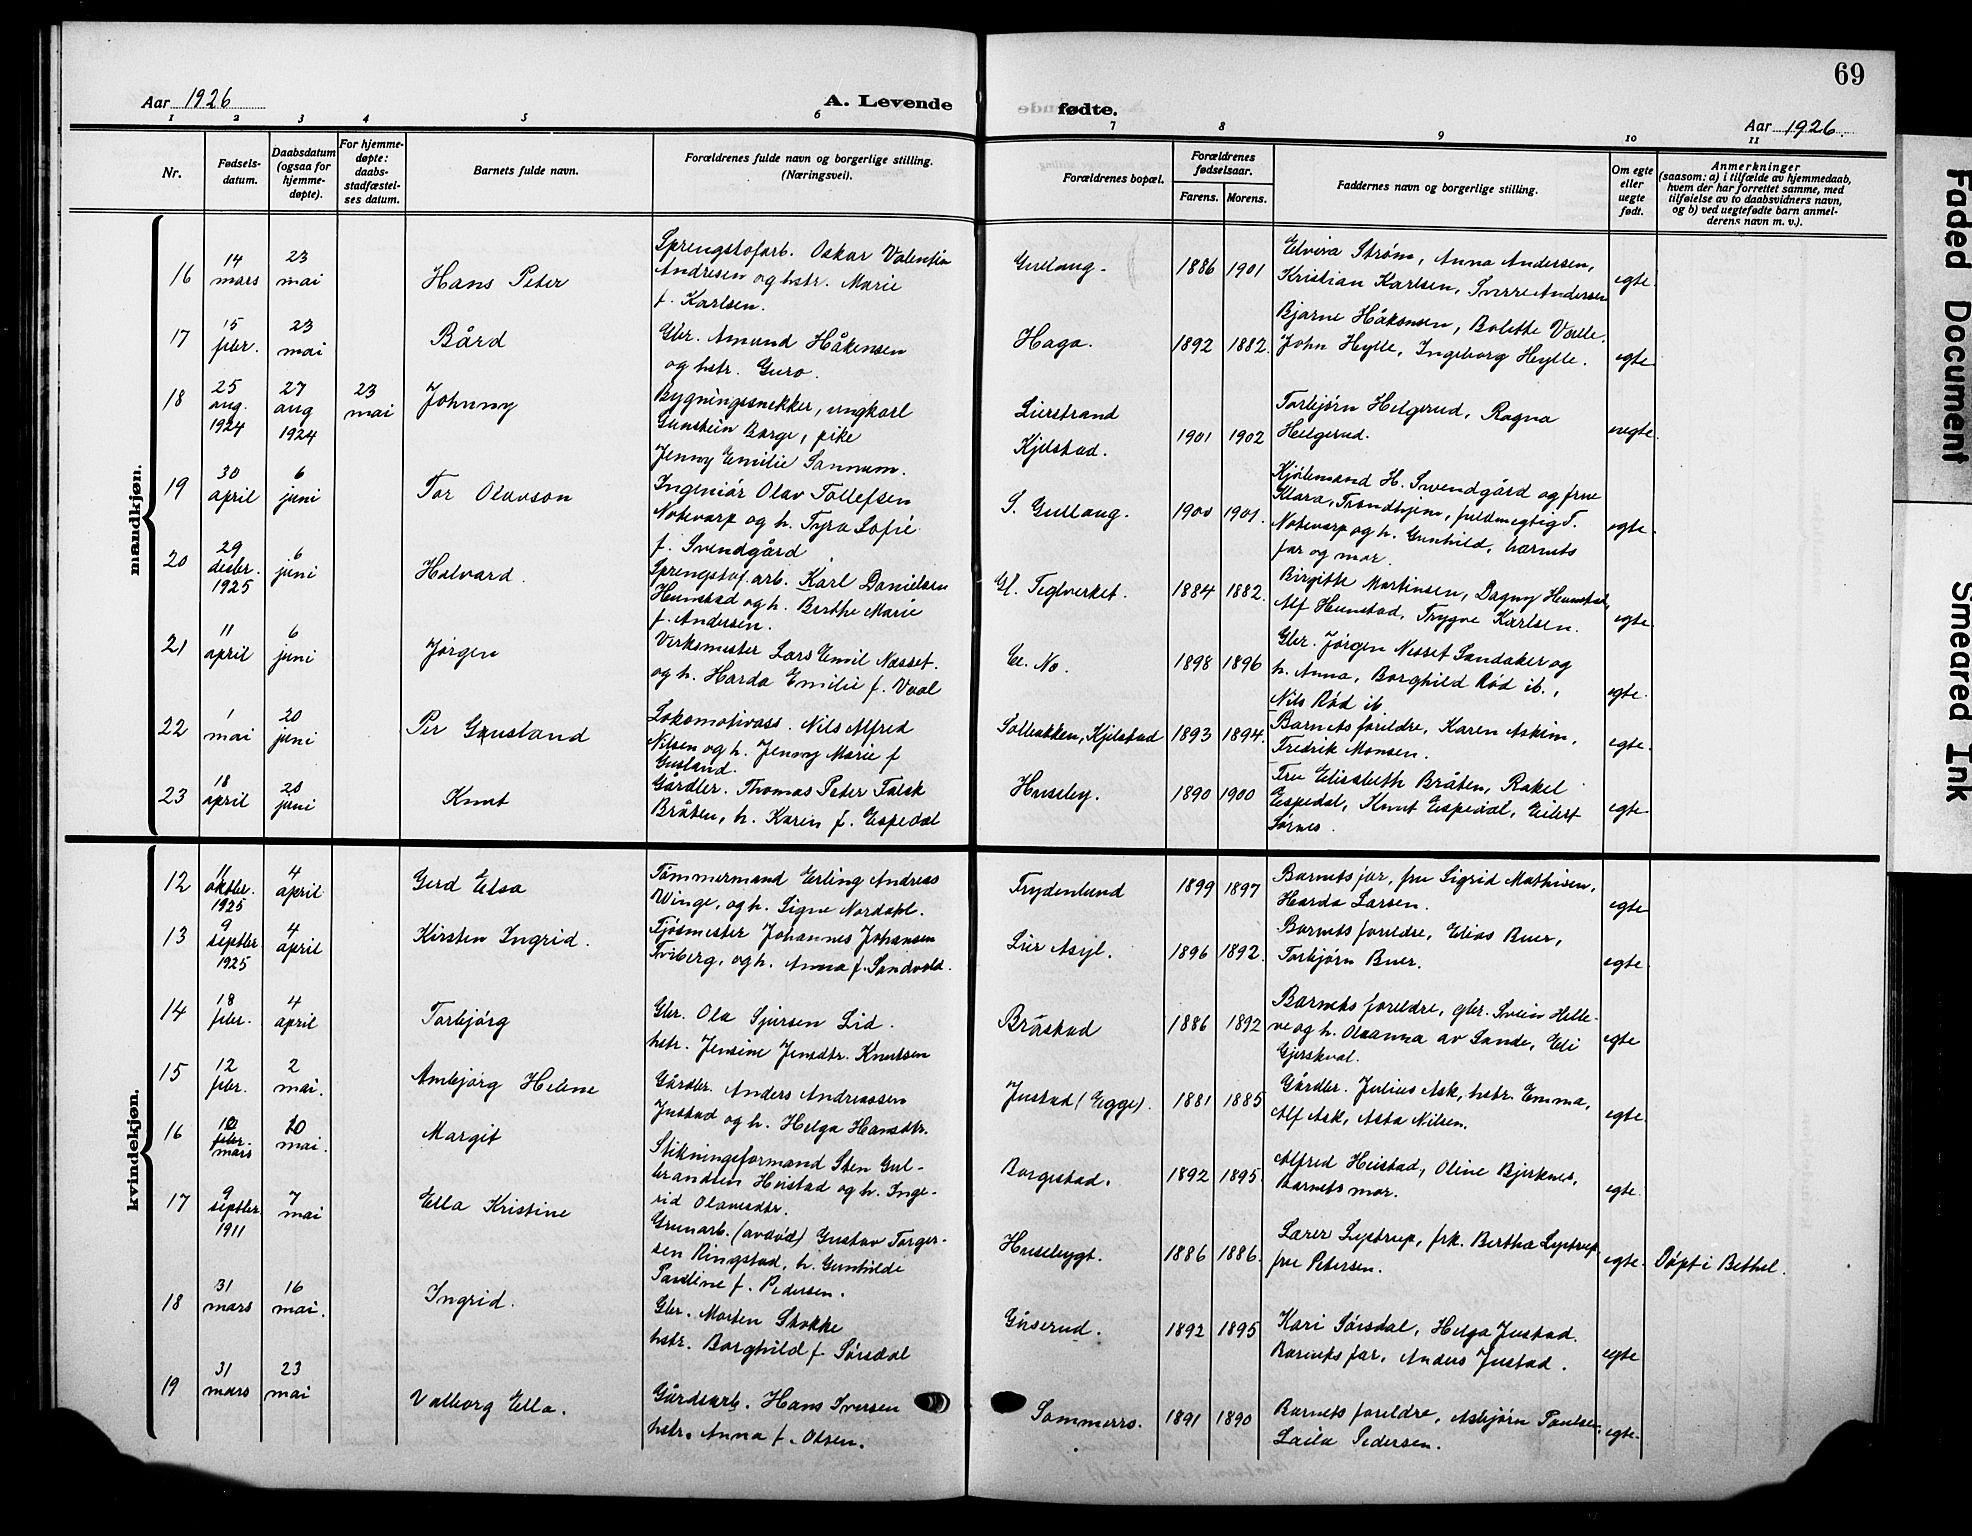 69
Aar 1926
A. Levende
fødte.
Aar 1926.
1 2 3 4 5 6 7 8 9 10 11
Nr.
Fødsels-
datum.
Daabsdatum
(ogsaa for
hjemme-
døpte).
For hjemme-
døpte:
daabs-
stadfæstel-
ses datum.
Barnets fulde navn.
Forældrenes fulde navn og borgerlige stilling.
(Næringsvei).
Forældrenes bopæl.
Forældrenes
fødselsaar.
Farens. Morens.
Faddernes navn og borgerlige stilling.
Om egte
eller
uegte
født.
Anmerkninger
(saasom: a) i tilfælde av hjemmedaab,
hvem der har forrettet samme, med
tilføielse av to daabsvidners navn,
og b) ved uegtefødte barn anmel-
derens navn m. v.).
mandkjøn.
16
14
mars
23
mai
Hans Peter
Sprengstofarb. Oskar Valentin
Andresen og hstr. Marie
f. Karlsen.
Gullaug.
1886 1901
Elvira Strøm, Anna Andersen,
Kristian Karlsen, Sverre Andersen
egte.
17
15
febr.
23
mai
Bård
Gbr. Amund Håkensen
og hstr. Guro.
Haga.
1892 1882.
Bjarne Håkonsen, Bolette Valle.
John Hylle, Ingeborg Hylle.
egte
18
25
aug.
1924
27
aug
1924
23
mai
Johnny
Bygningssnekker, ungkarl
Gunstein Borge, pike
Jenny Emilie Sannum.
Lierstrand
Kjelstad.
1901 1902
Torbjørn Helgerud, Ragna
Helgerud.
uegte.
19
30
april
6
juni
Tor Olavson
Ingeniør Olav Tollefsen
Notevarp og h. Tyra Sofie
f. Svendgård
S. Gullaug.
1900 1901.
Kjølemand H. Swendgård og frue
Klara, Trondhjem, fuldmegtig T.
Notevarp og h. Gunhild, barnets
far og mor.
egte.
20
29
desbr.
1925
6
juni
Halvard.
Sprengstof.arb. Karl Danielsen
Heimstad og h. Berthe Marie
f. Andersen.
Gl. Teglverket.
1884 1882.
Birgitte Martinsen, Dagny
Alf Trygve Karlsen.
egte.
21
11
april
6
juni
Jørgen
Verksmester Lars Emil Næsset.
og h. Harda Emilie f. Vaal
Ge. No.
1898 1896
Gbr. Jørgen Nesset Sandaker og
h. Anna, Borghild Rød ib.,
Nils Rød ib.
egte.
22
1
mai
20
juni
Per Gusland
Lokomotivass. Nils Alfred
Nilsen og h. Jenny Marie f
Gusland.
Solbakken, Kjelstad
1893 1894.
Barnets foreldre, Karen Askim,
Fredrik Monsen.
egte.
23
18
april
20
juni
Knut
Gårdbr. Thomas Peter Falck
Bråten, h. Karin f. Espedal
Huseby.
1890 1900
Fru Elisabeth Bråten, Rakel
Espedal, Knut Espedal, Eilert
Sørnes.
egte
kvindekjøn.
12
11
oktbr.
1925
4
april
Gerd Elsa
Tømmermand Erling Andreas
Winge, og h. Signe Nordahl.
Frydenlund
1899 1897
Barnets far, fru Sigrid Mathisen,
Harda Larsen.
egte
13
9
septbr
1925
4
april
Kirsten Ingrid.
Fjøsmester Johannes Johansen
Friberg, og h. Anna f. Sandvold.
Lier Asyl.
1896 1892.
Barnets foreldre, Elias Buer,
Torbjørn Buer.
egte.
14
18
febr.
4
april
Torbjørg
Gbr. Ola Sjursen Lid.
hstr. Jensine Jensdtr. Knutsen
Bråstad
1886 1892
Barnets foreldre, gbr. Svein Helle-
ve og h. Oleanna av Sande, Eli
Gjerskval.
egte
15
12
febr.
2
mai.
Ambjørg Helene
Gårdbr. Anders Andreassen
Justad og h. Helga Hansdtr.
Justad (Egge).
1881 1885
Gårdbr. Julius Ask, hstr. Emma,
Alf Ask, Asta Nilsen.
egte.
16
febr.
mars
20
mai.
Margit
Stikningsformand Sten Gul-
brandsen Heistad og h. Inge-
rid Olavesdtr.
Borgestad.
1892 1895.
Alfred Heistad, Oline Bjerknes,
Barnets mor.
egte.
17
9
septbr.
1911
7
mai
Ella Kristine
Grunarb. (avdød) Gustav Torger-
sen Ringstad, h. Gunhilde
Pauline f. Pedersen.
Husebygt.
1886 1886.
Lærer Lystrup, frk. Bertha Lystrup,
fru Petersen.
egte.
Døpt i Bethel.
18
31
mars
16
mai.
Ingrid.
Gbr. Morten Stokke
hstr. Borghild f. Sørsdal
Gåserud.
1892 1895
Kari Sørsdal, Helga Justad.
Barnets far, Anders Justad.
egte
19
31
mars
23
mai
Valborg Ella.
Gårdsarb. Hans Iversen
hstr. Anna f. Olsen.
Sommerro.
1891 1890
Barnets foreldre, Asbjørn Paulsen,
Laila Pedersen.
egte.
Faded Document
Smeared Ink